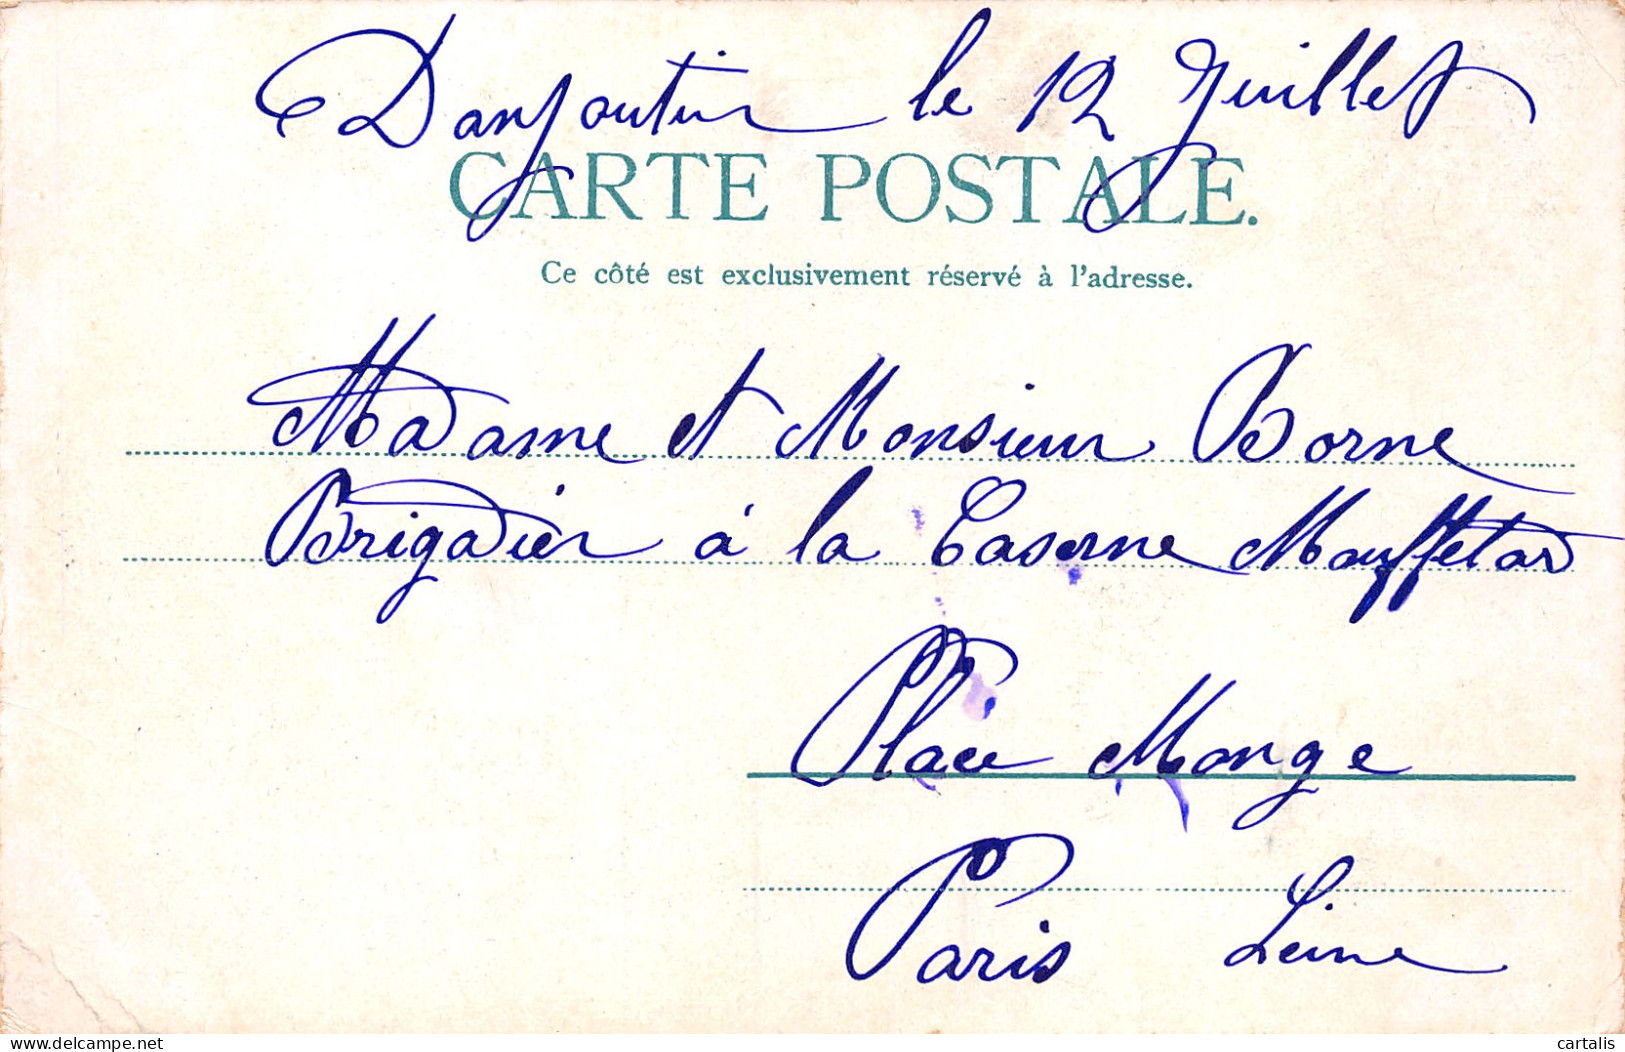 Danjoutin le 12 Juillet
CARTE POSTALE.
Ce côté est exclusivement réservé à l'adresse.
Madame et Monsieur Borne
Brigadier à la Caserne Mouffetard
Place Monge
Paris Seine
cartalis